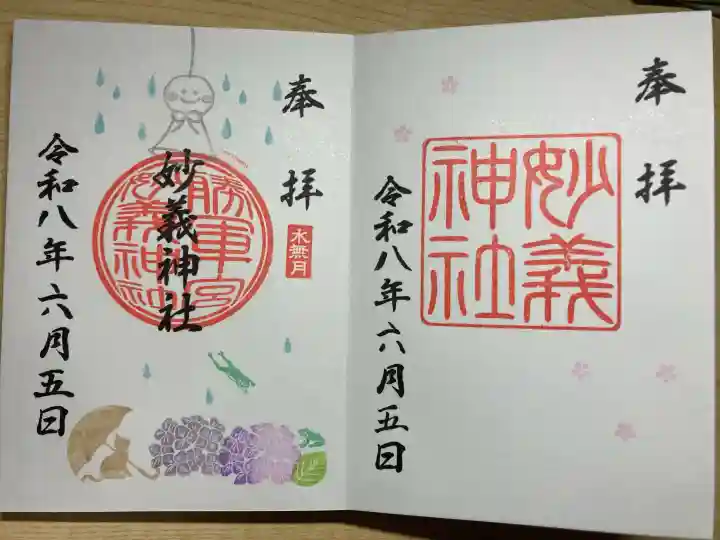 奉拝
妙義神社
勝軍宮
妙義神社
水無月
令和八年六月五日
奉拝
妙義神社
令和八年六月五日